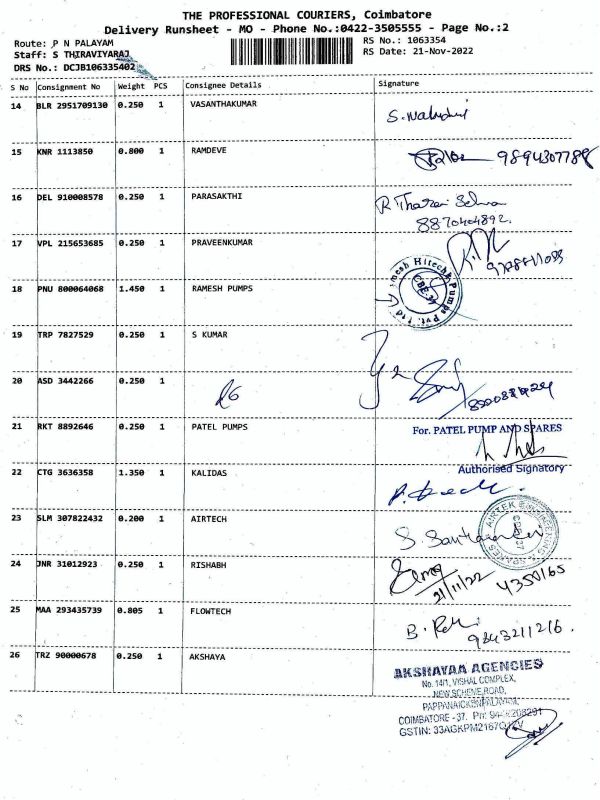 THE PROFESSIONAL COURIERS, Coimbatore
Delivery Runsheet - MO - Phone No.:0422-3505555 - Page No.:2
Route: P N PALAYAM
RS No.: 1063354
Staff: S THIRAVIYARAJ
RS Date: 21-Nov-2022
DRS No.: DCJB106335402
S No Consignment No Weight PCS Consignee Details Signature
14 BLR 2951709130 0.250 1 VASANTHAKUMAR
15 KNR 1113850 0.800 1 RAMDEVE
16 DEL 910008578 0.250 1 PARASAKTHI
8870404892.
17 VPL 215653685 0.250 1 PRAVEENKUMAR
18 PNU 800064068 1.450 1 RAMESH PUMPS
19 TRP 7827529 0.250 1 S KUMAR
20 ASD 3442266 0.250 1
21 RKT 8892646 0.250 1 PATEL PUMPS
For. PATEL PUMP AND SPARES
Authorised Signatory
22 CTG 3636358 1.350 1 KALIDAS
23 SLM 307822432 0.200 1 AIRTECH
24 JNR 31012923 0.250 1 RISHABH
21/11/22
25 MAA 293435739 0.805 1 FLOWTECH
9843211216.
26 TRZ 90000678 0.250 1 AKSHAYA
AKSHAYAA AGENCIES
No. 14/1, VISHAL COMPLEX,
NEW SCHEME ROAD,
COIMBATORE - 37.